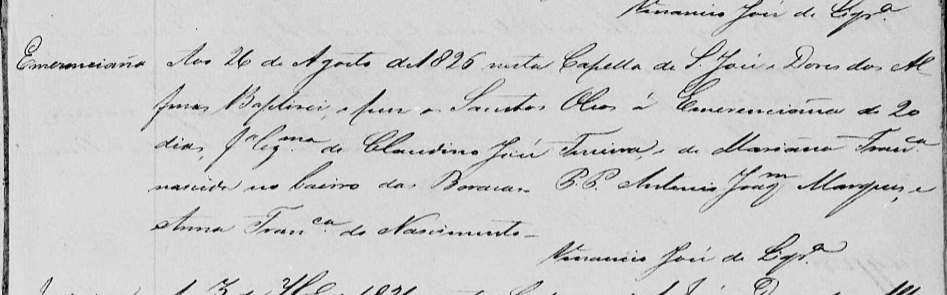 Venancio José de Siqrª.
Emerenciana Aos 26 de Agosto de 1826 nesta Capella de S. José e Dores dos Al
fenas Baptisei, e puz os Sanctos Oleos á Emerenciana de 20
dias, fª. leg.ma de Claudino José Ferreira, e de Mariana Fran.ca
nascida no bairro das P. P. Antonio Joaq.m Marques, e
Anna Fran.ca do Nascimento
Venancio José de Siqrª.